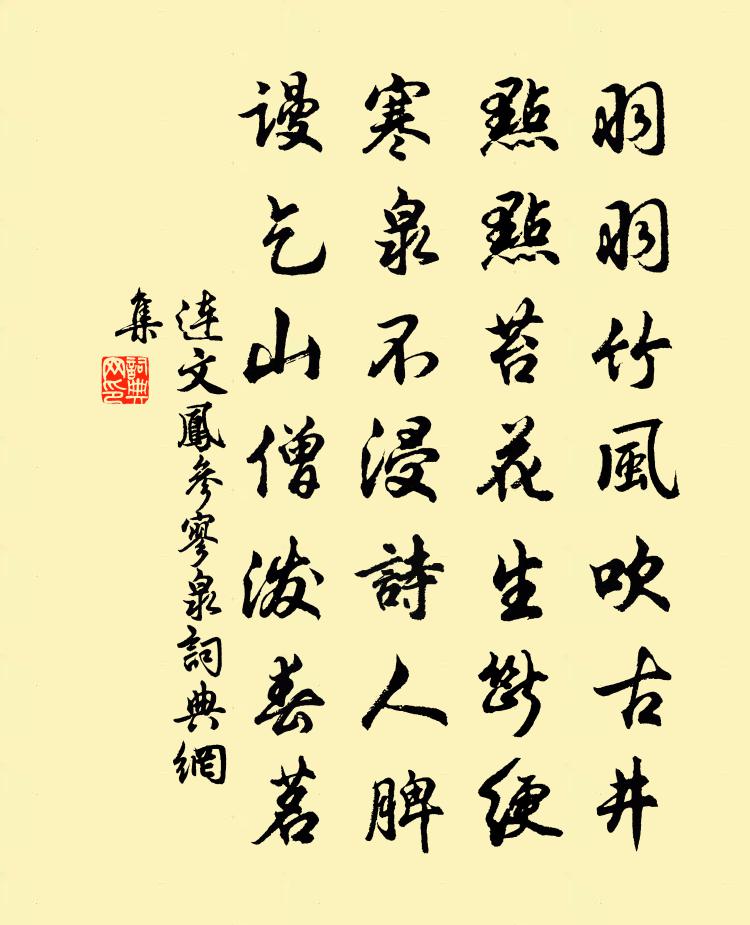 羽羽竹風吹古井
點點苔花生斷綆
寒泉不浸詩人脾
謾乞山僧潑春茗
連文鳳參寥泉詞典網
集
詞典網印